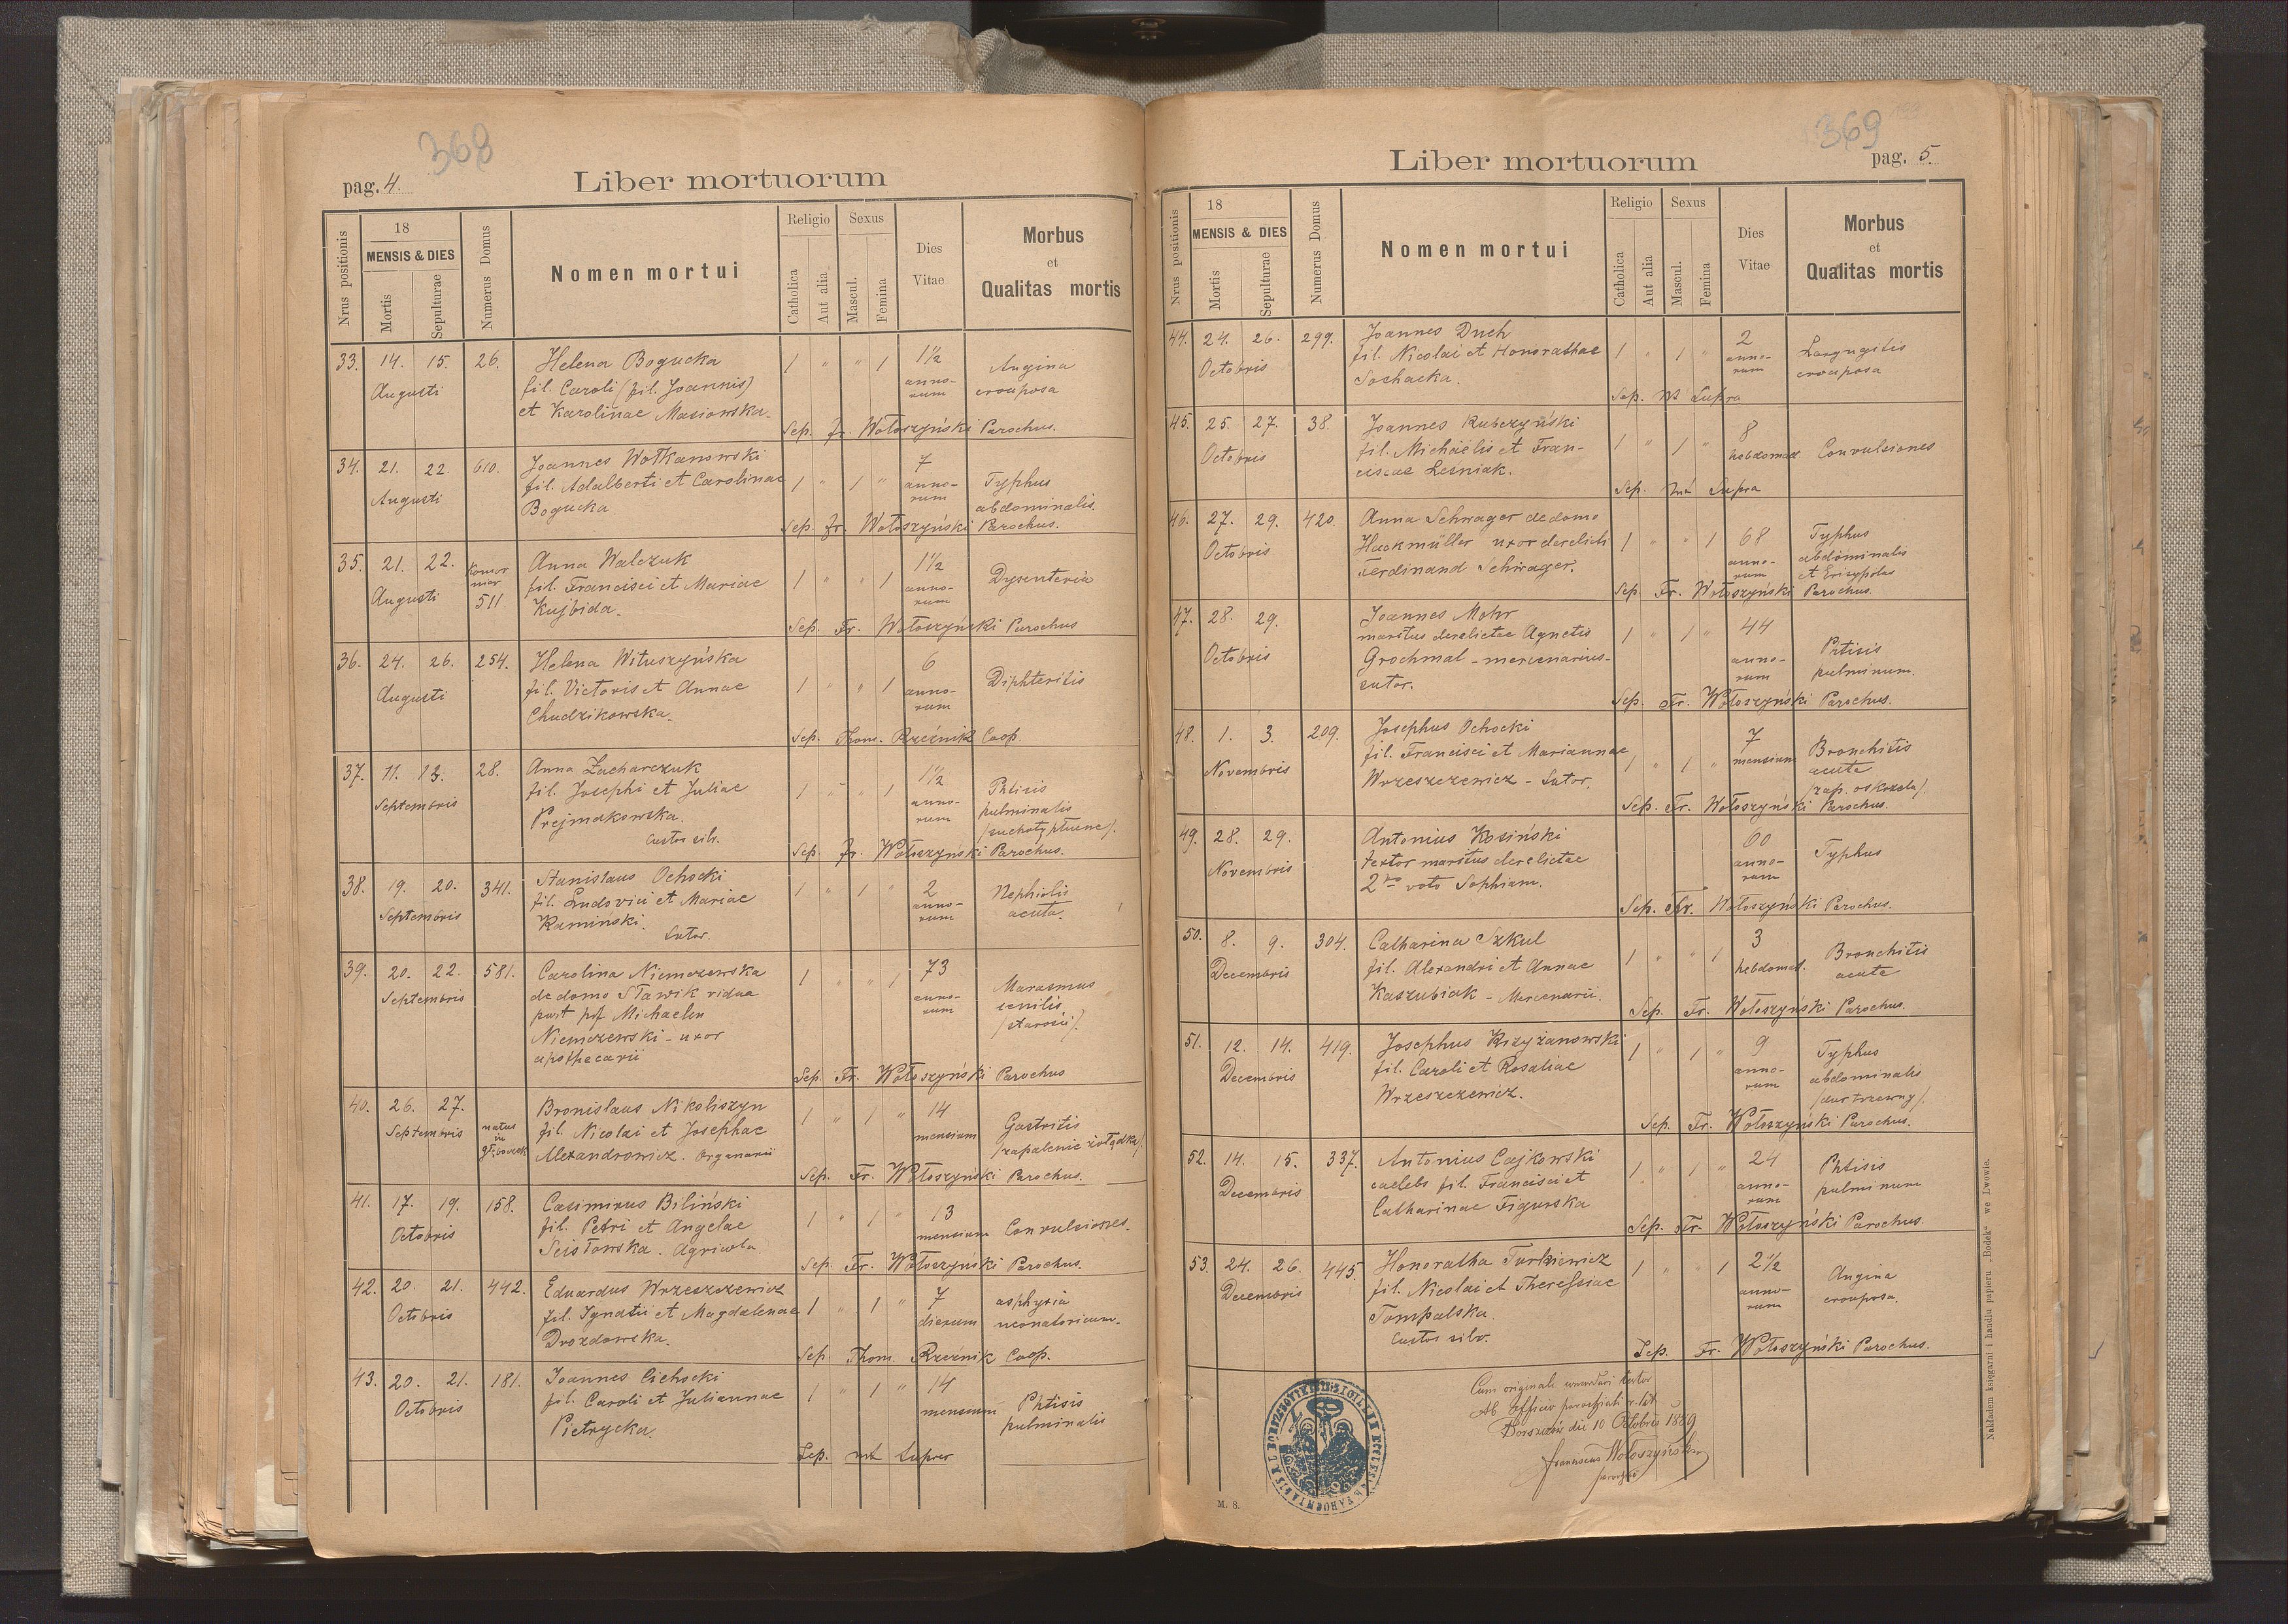 368
pag. 4.
Liber mortuorum
Nrus positionis
18
MENSIS & DIES
Mortis
Sepulturae
Numerus Domus
Nomen mortui
Religio
Catholica
Aut alia
Sexus
Mascul.
Femina
Dies
Vitae
Morbus
et
Qualitas mortis
33. 14. 15. 26. Helena Bogucka 1 " " 1 1 1/2 Angina
Augusti fil. Caroli (fil. Joannis) anno- crouposa
et Karolinae Masiowska. rum
Sep. Fr. Wołoszyński Parochus.
34. 21. 22. 610. Joannes Wołkanowski 7
Augusti fil. Adalberti et Carolinae 1 " 1 " anno- Typhus
Bogucka rum abdominalis.
Sep. Fr. Wołoszyński Parochus.
35. 21. 22. Komor Anna Walczuk 1 1/2
Augusti fil. Francisci et Mariae 1 " " 1 anno- Dysenteria
511. Kujbida. rum
Sep. Fr. Wołoszyński Parochus
36. 24. 26. 254. Helena Wituszyńska 6
Augusti fil. Victoris et Annae 1 " " 1 anno- Diphteritis
Chudzikowska. rum
Sep. Thom. Rzeźnik Coop.
37. 11. 13. 28. Anna Zacharczuk 1 1/2
Septembris fil. Josephi et Juliae 1 " " 1 anno- Phtisis
Prejmakowska. rum pulminalis
Custos silv. /suchoty płucne/.
Sep. Fr. Wołoszyński Parochus.
38. 19. 20. 341. Stanislaus Ochocki 1 " 1 " 2 Nephiolis
Septembris fil. Ludovici et Mariae anno- acuta.
Kaminski. rum
Sutor.
39. 20. 22. 581. Carolina Niemczewska 1 " " 1 73
Septembris de domo Sławik vidua anno- Marasmus
post Michaelem rum senilis
Niemczewski - uxor /starość/.
apothecarii
Sep. Fr. Wołoszyński Parochus
40. 26. 27. Bronislaus Nikoliszyn 1 " 1 " 14
Septembris natus fil. Nicolai et Josephae mensium Gastritis
in Alexandrowicz. Organarii /zapalenie żołądka/
Sep. Fr. Wołoszyński Parochus.
41. 17. 19. 158. Casimirus Biliński 1 " 1 " 13
Octobris fil. Petri et Angelae mensium Convulsiones.
Scisłowska. Agricola.
Sep. Fr. Wołoszyński Parochus.
42. 20. 21. 442. Eduardus Wrzeszczewicz 7 asphyxia
Octobris fil. Ignatii et Magdalenae 1 " 1 " dierum neonatorum.
Drozdowska.
Sep. Thom. Rzeźnik Coop.
43. 20. 21. 181. Joannes Cichocki 14
Octobris fil. Caroli et Juliannae 1 " 1 " mensium Phtisis
Pietrycka. pulminalis
Sep. ut supra
369
Liber mortuorum
pag. 5.
Nrus positionis
18
MENSIS & DIES
Mortis
Sepulturae
Numerus Domus
Nomen mortui
Religio
Catholica
Aut alia
Sexus
Mascul.
Femina
Dies
Vitae
Morbus
et
Qualitas mortis
44. 24. 26. 299. Joannes Duch 2
Octobris fil. Nicolai et Honorathae 1 " 1 " anno- Laryngitis
Sochacka. rum crouposa
Sep. ut Supra
45. 25. 27. 38. Joannes Rubczyński 8
Octobris fil. Michaelis et Fran- 1 " 1 " hebdomad. Convulsiones
ciscae Leśniak.
Sep. ut Supra
46. 27. 29. 420. Anna Schwager de domo Typhus
Octobris Hackmüller uxor derelicti 1 " " 1 68 abdominalis
Ferdinand Schwager. anno-rum et Erisypolas
Sep. Fr. Wołoszyński Parochus.
47. 28. 29. Joannes Mohr 44
Octobris maritus derelictae Agnetis 1 " 1 " Phtisis
Grochmal - mercenarius- anno- pulminum.
sutor. rum
Sep. Fr. Wołoszyński Parochus.
48. 1. 3. 209. Josephus Ochocki 7 Bronchitis
Novembris fil. Francisci et Mariannae 1 " 1 " mensium acute
Wrzeszczewicz - Sutor. /zap. oskrzela/.
Sep. Fr. Wołoszyński Parochus.
49. 28. 29. Antonius Kosiński 60
Novembris textor maritus derelictae anno- Typhus
2do voto Sophiam. rum
Sep. Fr. Wołoszyński Parochus.
50. 8. 9. 304. Catharina Szkul 3
Decembris fil. Alexandri et Annae 1 " " 1 hebdomad. Bronchitis
Kaszubiak - Mercenarii. acute
Sep. Fr. Wołoszyński Parochus.
51. 12. 14. 419. Josephus Krzyżanowski 1 " 1 " 9 Typhus
Decembris fil. Caroli et Rosaliae anno- abdominalis
Wrzeszczewicz. rum /dur brzuszny/.
Sep. Fr. Wołoszyński Parochus.
52. 14. 15. 337. Antonius Cajkowski 1 " 1 " 24 Phtisis
Decembris caelebs fil. Francisci et anno- pulminum
Catharinae Figurska rum
Sep. Fr. Wołoszyński Parochus.
53. 24. 26. 445. Honoratha Turkiewicz 1 " " 1 2 1/2
Decembris fil. Nicolai et Theressiae anno- Angina
Tompalska rum crouposa.
Custos silv.
Sep. Fr. Wołoszyński Parochus.
Cum originali concordari testor
Ab officio parochiali r. lat.
Borszczów die 10 Octobris 1889
Franciscus Wołoszyński
parochus
M. 8.
Nakładem księgarni i handlu papieru „Bodek" we Lwowie.